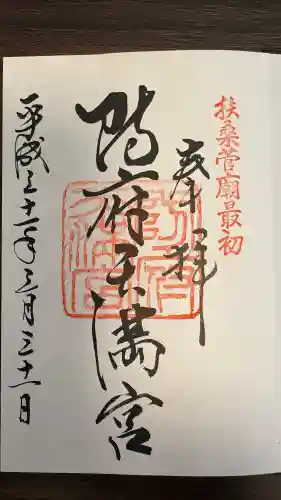 扶桑菅廟最初
奉拝
防府天満宮
平成三十一年三月三十一日